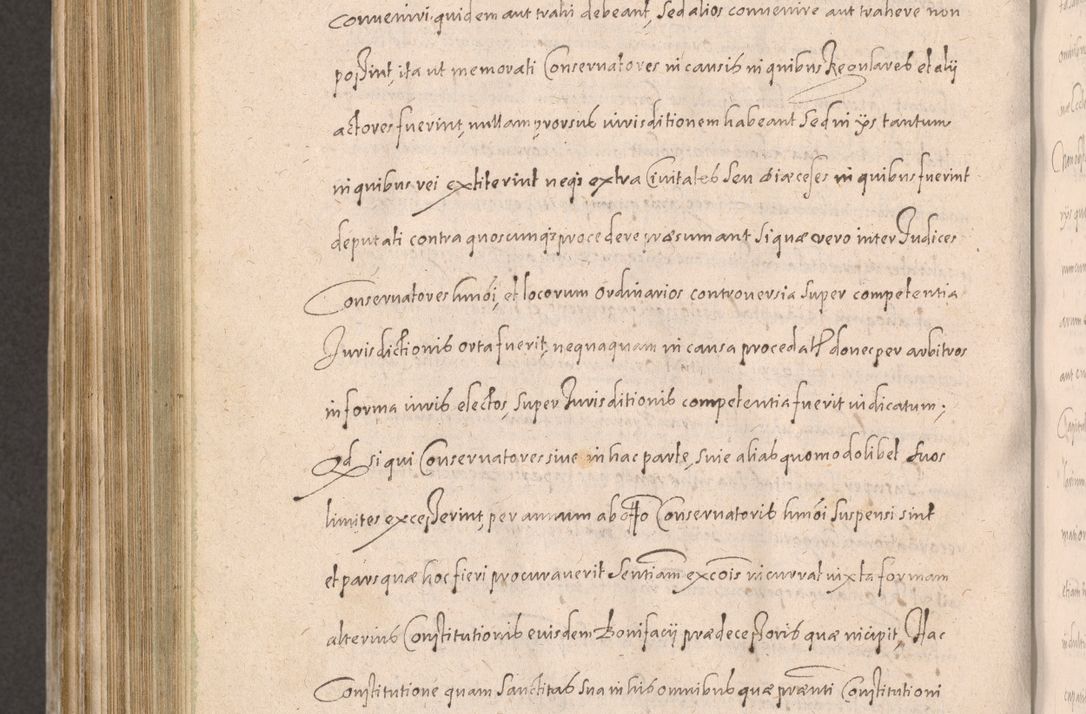 Conveniri quidem aut trahi debeant, Sed alios convenire aut trahere non
possint, ita ut memorati Conservatores in causis in quibus Regulares et alii
actores fuerint, nullam prorsus iurisditionem habeant Sed in ijs tantum
in quibus rei extiterint neqз extra Civitates Seu diæceses in quibus fuerint
deputati contra quoscunqз procedere præsumant Si quæ vero inter Iudices
Conservatores hmõi, et locorum Ordinarios controversia Super competentia
Jurisdictionis orta fuerit, nequaquam in causa procedat donec per arbitros
in forma iuris electos, Super Jurisditionis competentia fuerit iudicatum,
Qd si qui Conservatores sive in hac parte, sive alias quomodolibet Suos
limites excesserint, per annum ab offo Conservatoris hmõi Suspensi sint
et pars quæ hoc fieri procuraverit Sentiam excõis incurrat iuxta formam
alterius Constitutionis eiusdem Bonifacij prædecessoris quæ incipit, Hac
Constitutione quam Sanctitas Sua in his omnibus quæ prænti Constitutioni